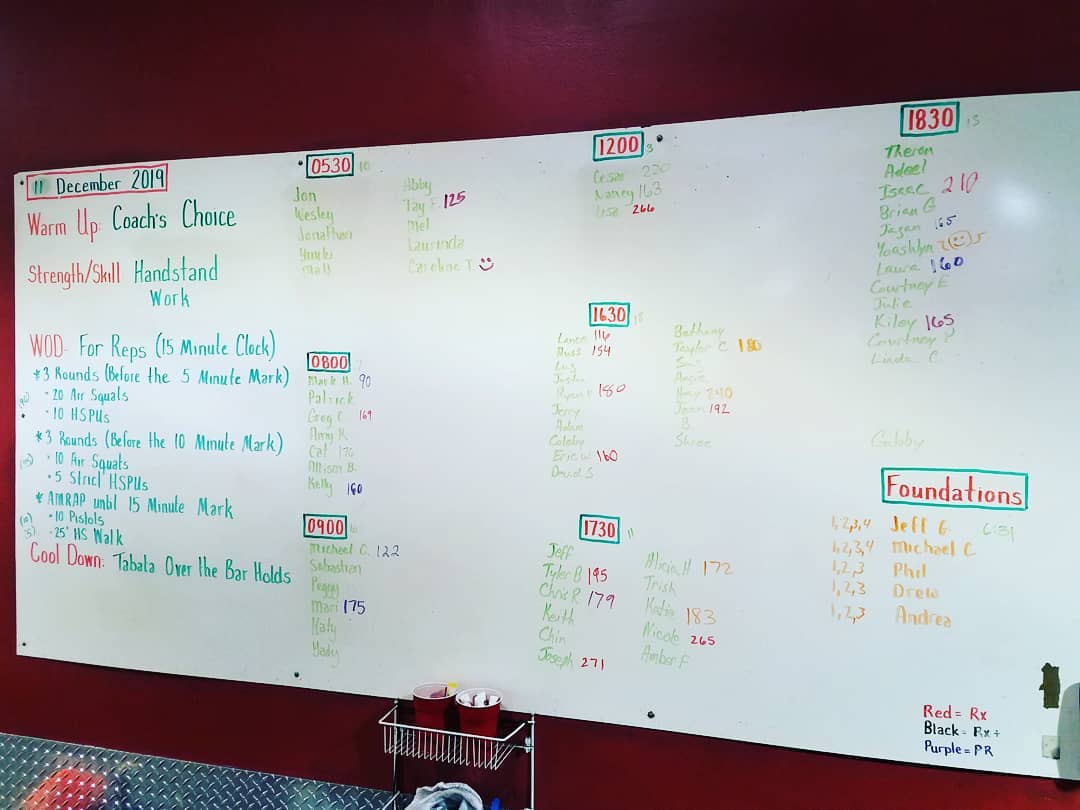 11 December 2019
Warm Up: Coach's Choice
Strength/Skill Handstand
Work
WOD- For Reps (15 Minute Clock)
*3 Rounds (Before the 5 Minute Mark)
- 20 Air Squats
- 10 HSPUs
*3 Rounds (Before the 10 Minute Mark)
- 10 Air Squats
- 5 Strict HSPUs
* AMRAP until 15 Minute Mark
- 10 Pistols
- 25' HS Walk
Cool Down: Tabata Over the Bar Holds
0530 10
Jon
Wesley
Jonathan
Matt
Abby
Tay F. 125
Mel
Laurinda
Caroline T.
0800
Mark H. 90
Patrick
Greg C 169
Amy K.
Cat 176
Allison B.
Kelly 160
0900
Michael C. 122
Sebastian
Peggy
Mari 175
Katy
Yady
1200 3
Cesar 220
Nancy 163
Lisa 266
1630 18
Lance 116
Russ 154
Luz
Justin
Ryan H 180
Jerry
Adam
Colby
Eric W. 160
David S
Bethany
Taylor C 180
Angie
240
Jenn 192
B
Shree
1730 11
Jeff
Tyler B 195
Chris R 179
Keith
Chin
Joseph 271
Alicia H 172
Trish
Katie 183
Nicole 265
Amber F
1830 13
Theron
Adeel
Isaac 210
Brian G
Jagan 165
Yoashlyn
Laura 160
Courtney E
Julie
Kiley 165
Courtney P
Linda C
Gabby
Foundations
1,2,3,4 Jeff G. 6:31
1,2,3,4 Michael C
1,2,3 Phil
1,2,3 Drew
1,2,3 Andrea
Red = Rx
Black = Rx +
Purple = PR